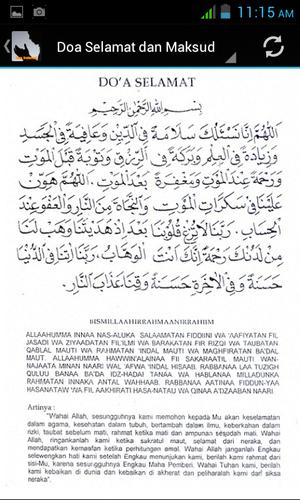 11:15 AM
Doa Selamat dan Maksud
DO'A SELAMAT
بِسْمِ اللهِ الرَّحْمٰنِ الرَّحِيْمِ
اَللّٰهُمَّ اِنَّا نَسْئَلُكَ سَلَامَةً فِى الدِّيْنِ وَعَافِيَةً فِى الْجَسَدِ
وَزِيَادَةً فِى الْعِلْمِ وَبَرَكَةً فِى الرِّزْقِ وَتَوْبَةً قَبْلَ الْمَوْتِ
وَرَحْمَةً عِنْدَ الْمَوْتِ وَمَغْفِرَةً بَعْدَ الْمَوْتِ. اَللّٰهُمَّ هَوِّنْ
عَلَيْنَا فِى سَكَرَاتِ الْمَوْتِ وَالنَّجَاةَ مِنَ النَّارِ وَالْعَفْوَ عِنْدَ
الْحِسَابِ. رَبَّنَا لَاتُزِغْ قُلُوْبَنَا بَعْدَ اِذْ هَدَيْتَنَا وَهَبْ لَنَا
مِنْ لَدُنْكَ رَحْمَةً اِنَّكَ اَنْتَ الْوَهَّابُ. رَبَّنَا اٰتِنَا فِى الدُّنْيَا
حَسَنَةً وَفِى الْاٰخِرَةِ حَسَنَةً وَقِنَا عَذَابَ النَّارِ.
BISMILLAAHIRRAHMAANIRRAHIIM
ALLAAHUMMA INNAA NAS-ALUKA SALAAMATAN FIDDIINI WA 'AAFIYATAN FIL
JASADI WA ZIYAADATAN FIL'ILMI WA BARAKATAN FIR RIZQI WA TAUBATAN
QABLAL MAUTI WA RAHMATAN 'INDAL MAUTI WA MAGHFIRATAN BA'DAL
MAUT. ALLAAHUMMA HAWWIN'ALAINAA FII SAKARAATIL MAUTI WAN-
NAJAATA MINAN NAARI WAL 'AFWA 'INDAL HISAAB. RABBANAA LAA TUZIGH
QULUU BANAA BA'DA IDZ-HADAI TANAA WA HABLANAA MILLADUNKA
RAHMATAN INNAKA ANTAL WAHHAAB. RABBANAA AATINAA FIDDUN-YAA
HASANATAW WA FIL AAKHIRATI HASA-NATAU WA QINAA A'DZAABAN NAARI.
Artinya :
"Wahai Allah, sesungguhnya kami memohon kepada Mu akan keselamatan
dalam agama, kesehatan dalam tubuh, bertambah dalam ilmu, keberkahan dalam
rizki, taubat sebelum mati, rahmat ketika mati dan ampunan sesudah mati. Wahai
Allah, ringankanlah kami ketika sakratul maut, selamat dari neraka, dan
mendapatkan kemaafan ketika perhitungan emal. Wahai Allah janganlah Engkau
selewengkan hati kami setelah Engkau menunjukkan kami, berilah kami rahmat dari
sisi-Mu, karena sesungguhnya Engkau Maha Pemberi. Wahai Tuhan kami, berilah
kami kebaikan di dunia dan kebaikan di akherat dan peliharalah kami dari siksa